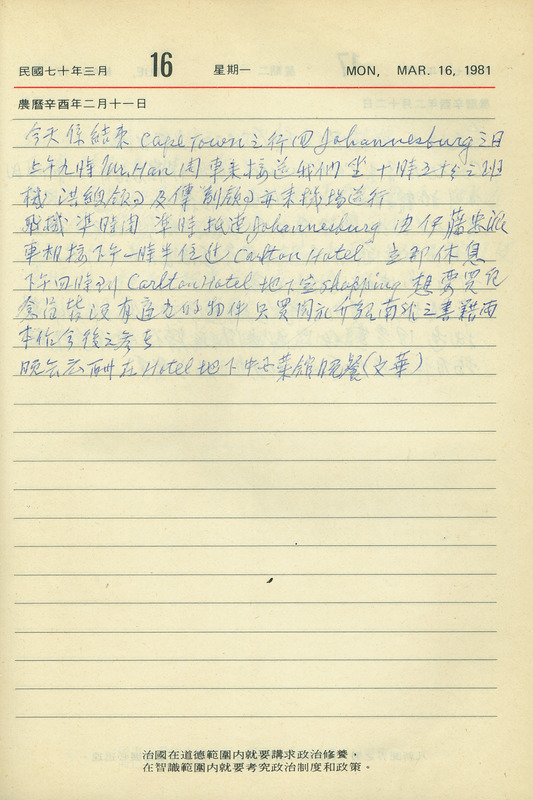 民國七十年三月 16 星期一 MON, MAR. 16, 1981
農曆辛酉年二月十一日
今天係結束 Cape Town 之行回 Johannesburg 之日
上午九時 Mr. Han 開車來接送我們坐十時五十分之班
機 洪總領事及傅副領事亦來機場送行
飛機準時開 準時抵達 Johannesburg 由伊藤忠派
車相接下午一時半住進 Carlton Hotel 立即休息
下午四時到 Carlton Hotel 地下室 shopping 想要買紀
念品皆沒有適当的物件 只買關於介紹南非之書籍兩
本作今後之參考
晚六 在 Hotel 地下中菜館晚餐(文華)
治國在道德範圍內就要講求政治修養，
在智識範圍內就要考究政治制度和政策。